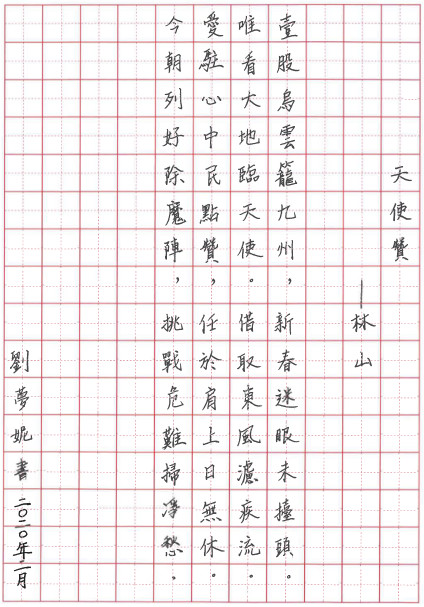 天使贊
——林山
壹股烏雲籠九州，新春迷眼未擡頭。
唯看大地臨天使。借取東風濾疾流。
愛駐心中民點贊，任於肩上日無休。
今朝列好除魔陣，挑戰危難掃淨愁。
劉夢妮書 二〇二〇年二月